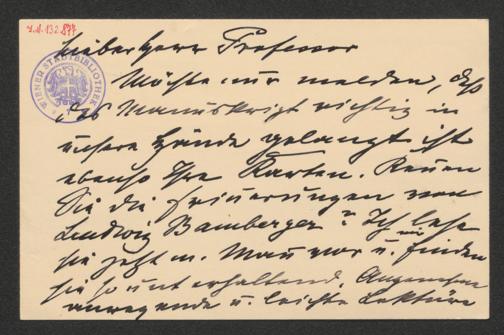 J.N. 132.877
WIENER STADTBIBLIOTHEK
Lieber Herr Professor
Möchte nur melden, daß
das Manuskript richtig in
unsere Hände gelangt ist
ebenso Ihre Karten. Kennen
Sie die Erinnerungen von
Ludwig Bamberger? Ich lese
sie jetzt m. Mann vor u. finden
sie so unterhaltend. Angenehme
anregende u. leichte Lektüre